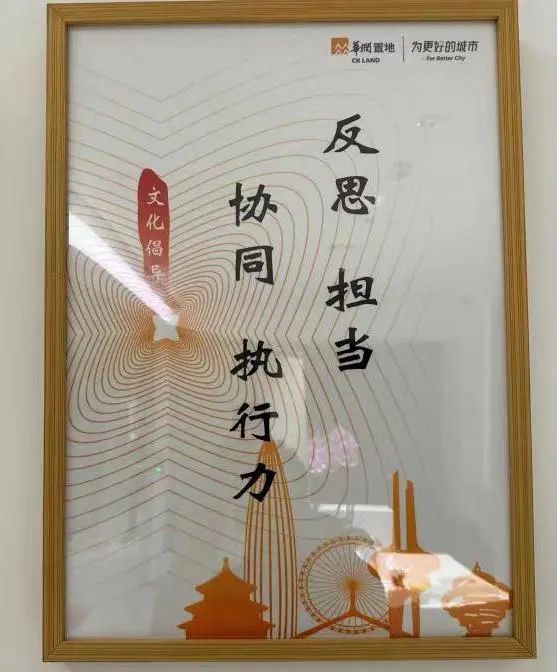 华润置地
CR LAND
为更好的城市
For Better City
反思 担当
协同 执行力
文化倡导